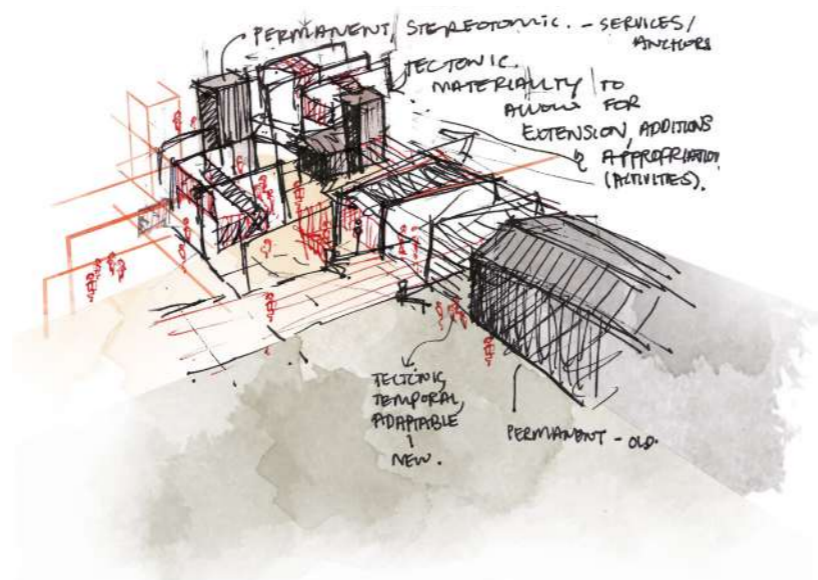 PERMANENT/ STEREOTOMIC. - SERVICES/
ANCHORS
TECTONIC
MATERIALITY TO
ALLOW FOR
EXTENSION, ADDITIONS
& APPROPRIATION
(ACTIVITIES).
TECTONIC,
TEMPORAL,
ADAPTABLE
NEW.
PERMANENT - OLD.